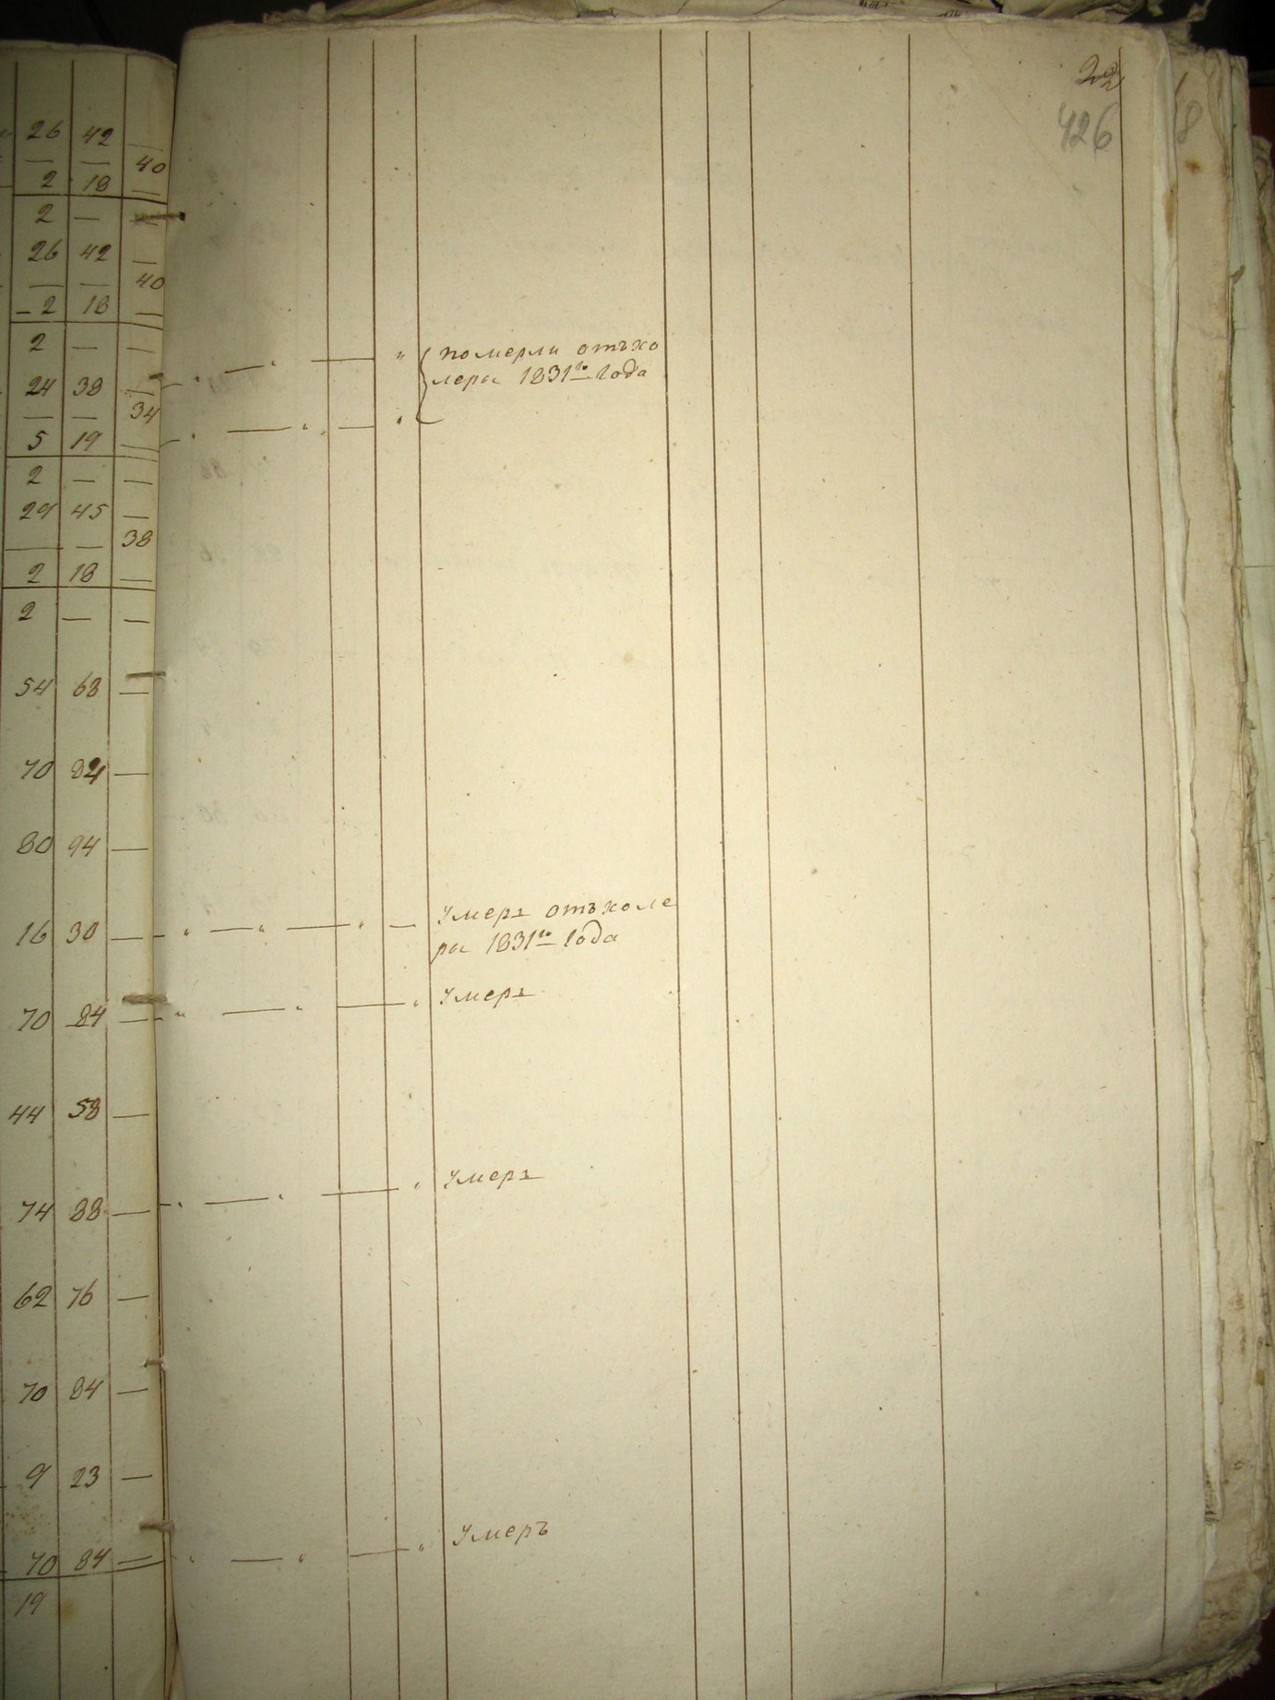 426
26 42 —
— — 40
2 18 —
2 — —
26 42 —
— — 40
2 18 —
2 — —
24 38 —
— — 34
5 19 —
2 — —
29 45 —
— — 38
2 18 —
2 — —
54 68 —
70 84 —
80 94 —
16 30 —
70 84 —
44 58 —
74 88 —
62 76 —
70 84 —
9 23 —
70 84 —
19
померли отъхо
леры 1831го года
Умеръ отъхоле
ры 1831го года
Умеръ
Умеръ
Умеръ